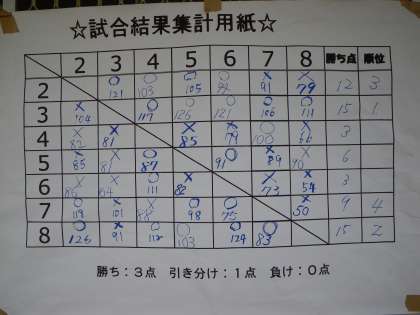 ☆試合結果集計用紙☆
2 3 4 5 6 7 8 勝ち点 順位
2 ○ 121 ○ 103 ○ 105 ○ × 91 × 79 12 3
3 × 104 ○ 117 ○ 126 ○ 121 ○ 106 ○ 111 15 1
4 × 82 × 81 × 85 × 79 ○ 100 × 66 3
5 × 85 × 81 ○ 87 ○ 91 × 89 × 90 6
6 × 86 × 64 ○ 111 × 82 × 73 × 54 3
7 ○ 119 × 101 × 88 ○ 98 ○ 75 × 50 9 4
8 ○ 126 × 91 ○ 112 ○ 103 ○ 124 ○ 83 15 2
勝ち：3点 引き分け：1点 負け：0点